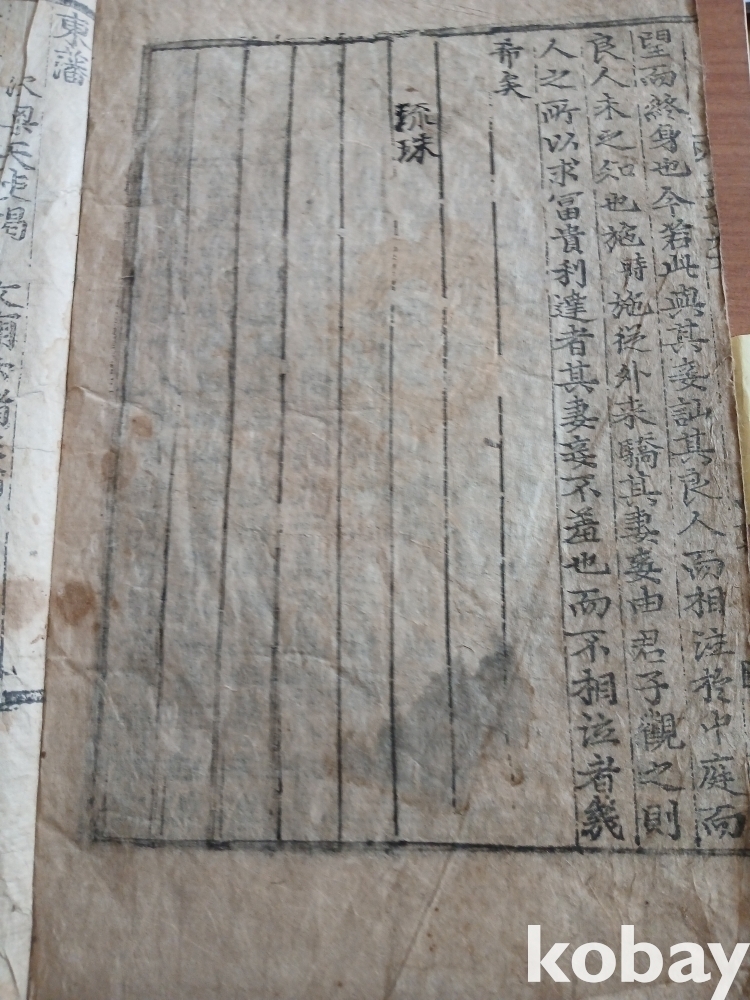 望而終身也今若此與其妾訕其良人而相注於中庭而
良人未之知也施時施從外来驕其妻妾由君子觀之則
人之所以求冨貴利達者其妻妾不羞也而不相泣者幾
希矣
琉球
東藩
kobay